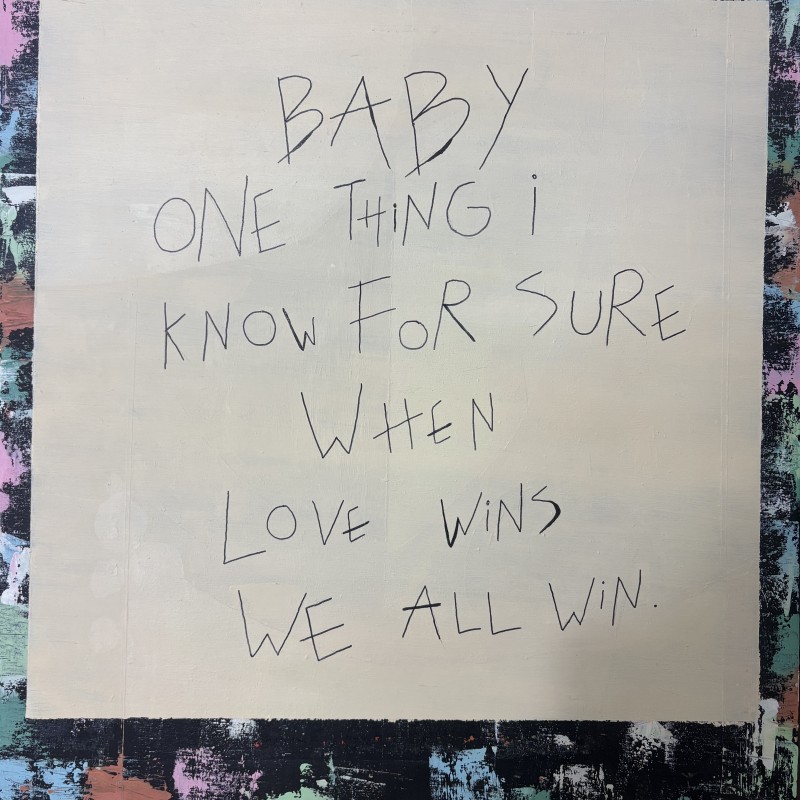 BABY
ONE THiNG i
KNOW FoR SURE
WHEN
LOVE WiNS
WE ALL WiN.